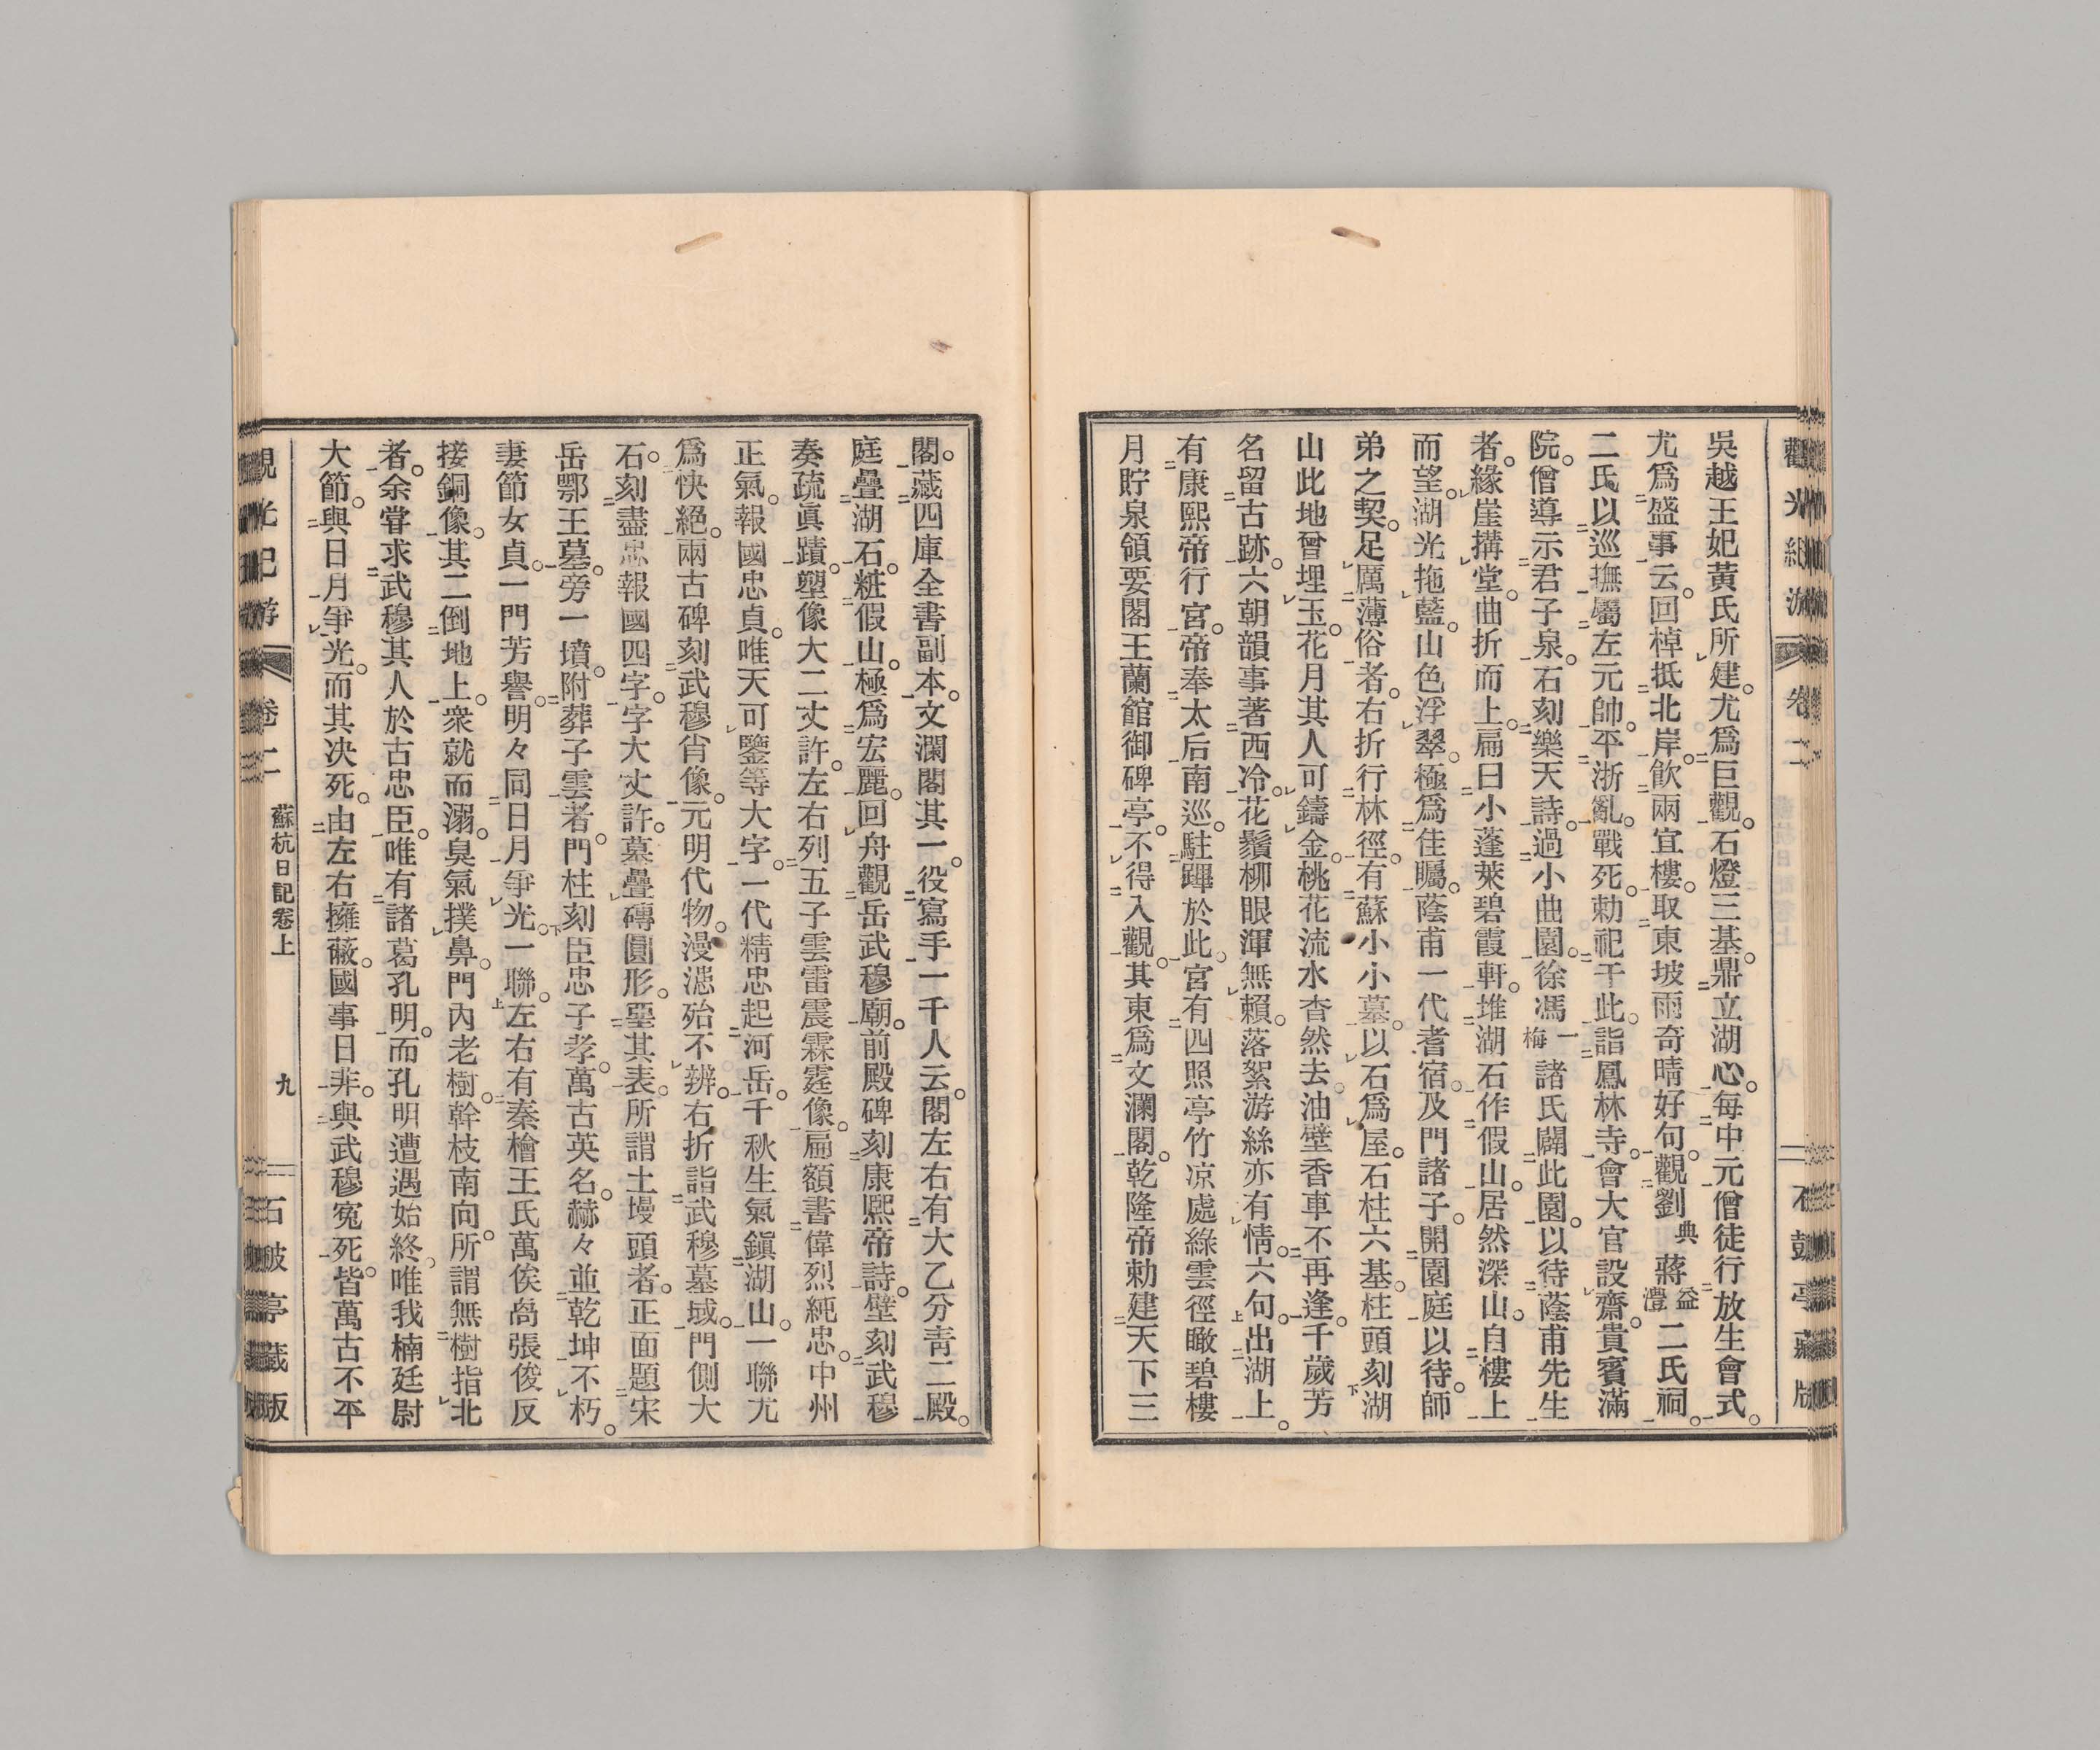 吳越王妃黄氏所建。尤爲巨觀。石燈三基。鼎立湖心。每中元僧徒行放生會式。
尤爲盛事云。回棹抵北岸。飮兩宜樓。取東坡雨奇晴好句。觀劉典蔣益澧二氏祠。
二氏以巡撫屬左元帥。平浙亂。戰死。勅祀于此。詣鳳林寺。會大官設齋。貴賓滿
院。僧導示君子泉。石刻樂天詩。過小曲園。徐馮一梅諸氏闢此園。以待蔭甫先生
者。緣崖搆堂。曲折而上。扁曰小蓬萊碧霞軒。堆湖石作假山。居然深山。自樓上
而望。湖光拖藍。山色浮翠。極爲佳矚。蔭甫一代耆宿。及門諸子。開園庭以待。師
弟之契。足厲薄俗者。右折行林徑。有蘇小小墓。以石爲屋。石柱六基。柱頭刻湖
山此地曾埋玉。花月其人可鑄金。桃花流水杳然去。油壁香車不再逢。千歲芳
名留古跡。六朝韻事著西冷。花鬚柳眼渾無賴。落絮游絲亦有情。六句。出湖上。
有康熙帝行宮。帝奉太后南巡。駐蹕於此。宮有四照亭竹凉處綠雲徑瞰碧樓
月貯泉領要閣王蘭館御碑亭。不得入觀。其東爲文瀾閣。乾隆帝勅建天下三
閣。藏四庫全書副本。文瀾閣其一。役寫手一千人云。閣左右有大乙分青二殿。
庭疊湖石。粧假山。極爲宏麗。回舟觀岳武穆廟。前殿碑刻康熙帝詩。壁刻武穆
奏疏眞蹟。塑像大二丈許。左右列五子雲雷震霖霆像。扁額書偉烈純忠。中州
正氣。報國忠貞。唯天可鑒等大字。一代精忠起河岳。千秋生氣鎭湖山。一聯尤
爲快絕。兩古碑刻武穆肖像。元明代物。漫漶殆不辨。右折詣武穆墓域。門側大
石。刻盡忠報國四字。字大丈許。墓疊磚圓形。堊其表。所謂土墁頭者。正面題宋
岳鄂王墓。旁一墳。附葬子雲者。門柱刻臣忠子孝。萬古英名。赫々並乾坤不朽。
妻節女貞。一門芳譽。明々同日月爭光。一聯。左右有秦檜王氏萬俟卨張俊反
接銅像。其二倒地上。衆就而溺。臭氣撲鼻。門內老樹。幹枝南向。所謂無樹指北
者。余甞求武穆其人於古忠臣。唯有諸葛孔明。而孔明遭遇始終。唯我楠廷尉
大節。與日月爭光。而其决死。由左右擁蔽。國事日非。與武穆寃死。皆萬古不平
觀光紀游
卷二
蘇杭日記卷上
九
石皷亭藏版